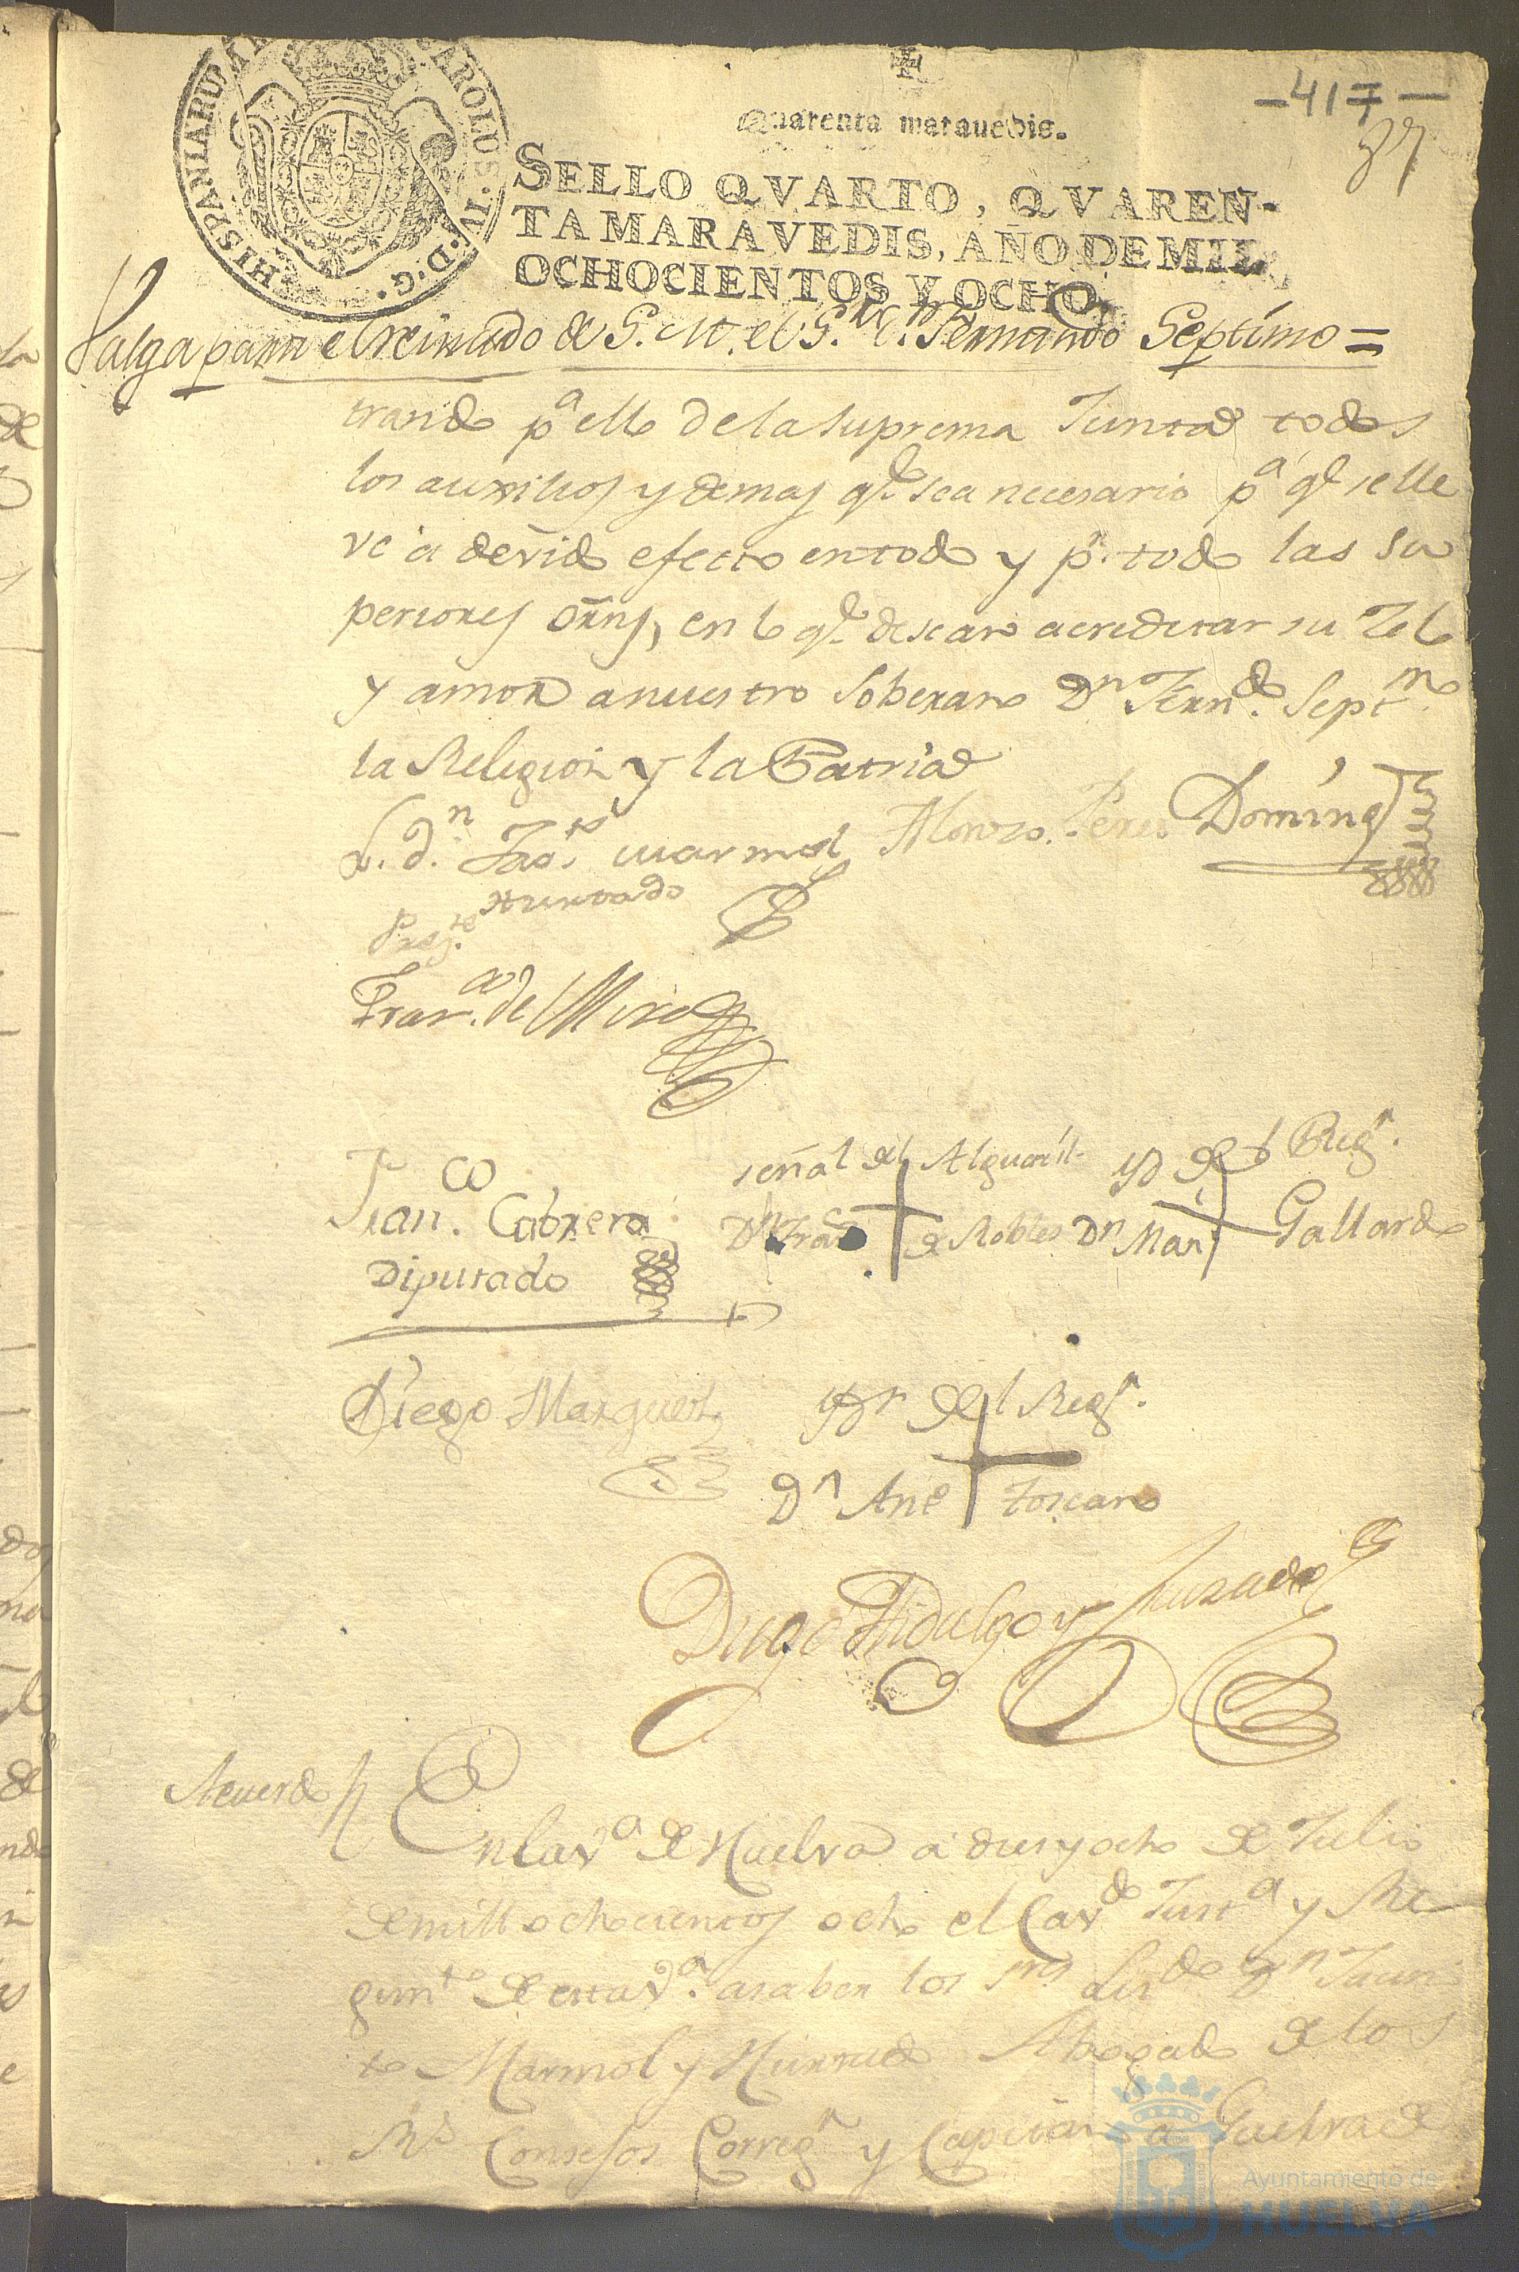 -417-
37
Quarenta maravedis.
HISPANIARUM CAROLUS·IV·D·G·
SELLO QVARTO, QVAREN-
TA MARAVEDIS, AÑO DE MIL
OCHOCIENTOS Y OCHO.
Valga para el reinado de S. M. el S.or D.n Fernando Septimo =
trando p.a ello de la suprema Junta todos
los auxilios y demas q.e sea necesario p.a q.e se lle
ve a devido efecto en todo y p.r todo las su
periores orns, en lo q.e desean acreditar su Zelo
y amor a nuestro Soberano Dn Fern.do Sept.mo
la Religion y la Patria
L.d.n Jac.to Marmol Alonso Perez Doming
Hurtado
Presz.te
Fran.co de Mora
Fran.co Cabrera
Diputado
señal del Alguacil
Dn Fran.co de Robles
yd del Reg.r
Dn Man. Gallardo
Diego Marquez
yd.r del Reg.r
Dn Anto Toscano
Diego Hidalgo y Jurado
Acuerdo
En la V.a de Huelva a diez y ocho de Julio
de mill ochocientos ocho el Cav.do Just.a y Re
gim.to de esta V.a a saber los S.res Liz.do Dn Jacin
to Marmol y Hurtado Abogado de los
R.s Consejos Correg.r y Capitan a Guerra de
Ayuntamiento de
HUELVA